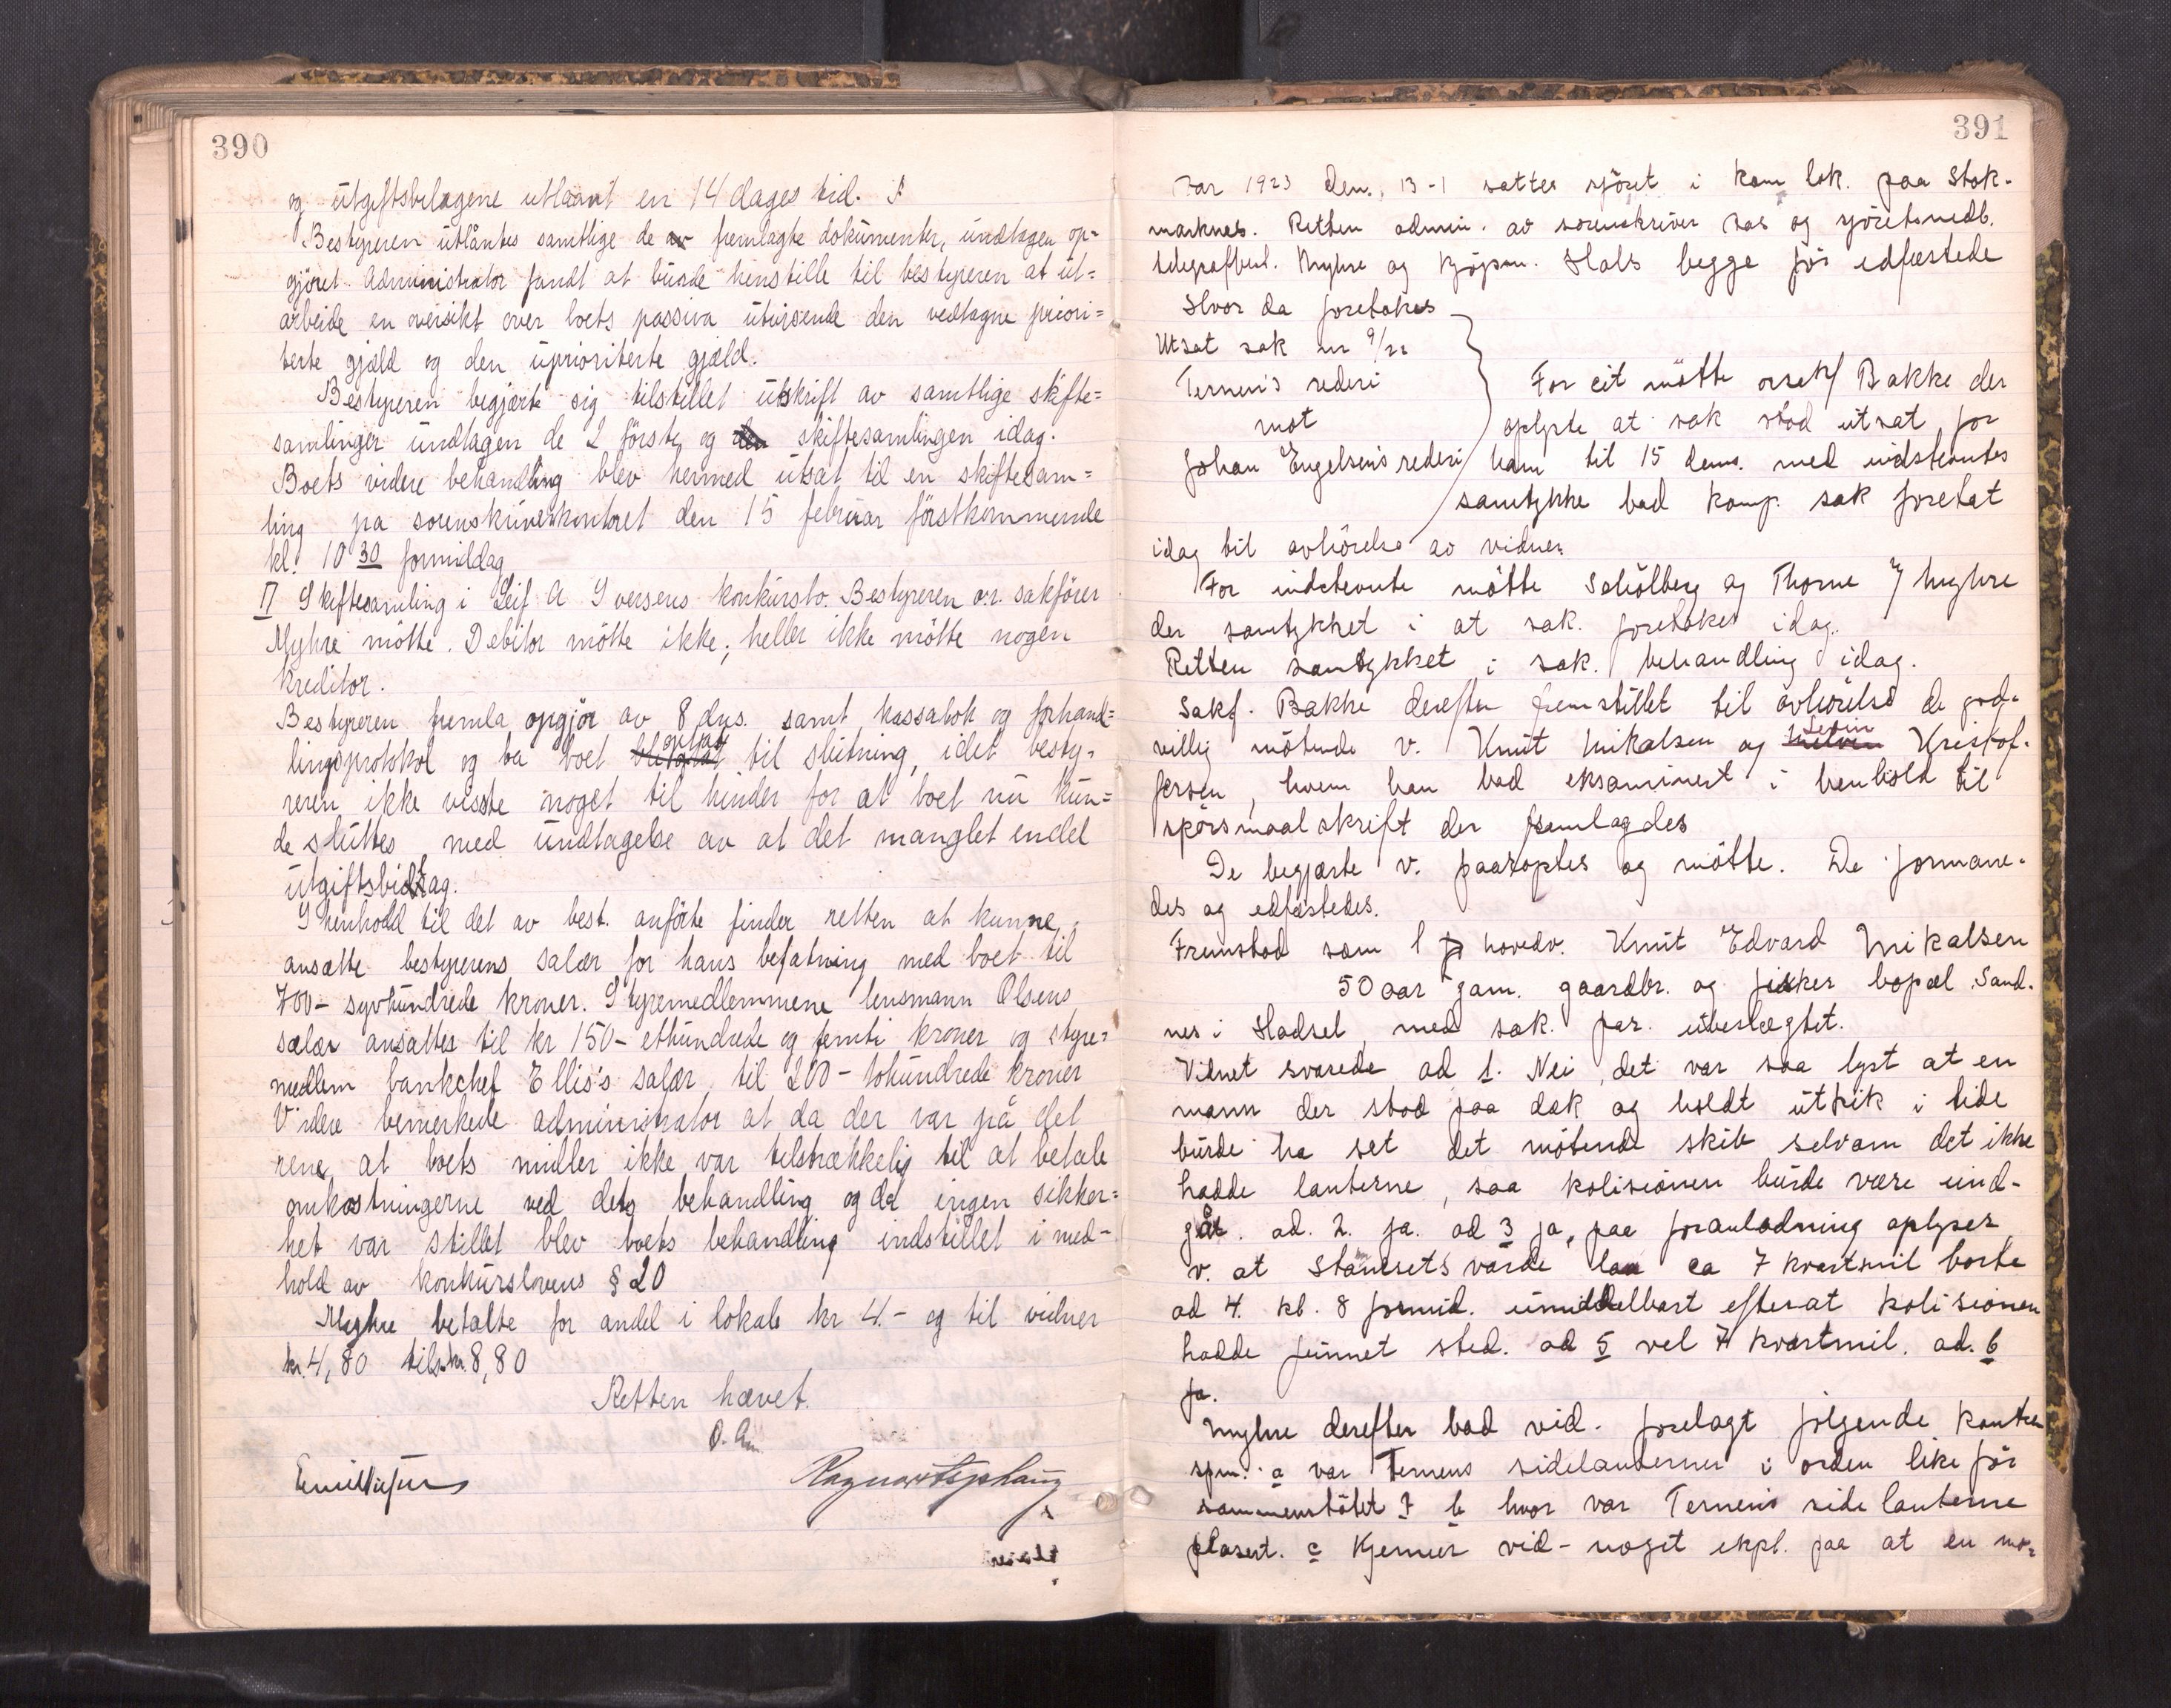 390
og utgiftsbilagene utlaant en 14 dages tid.
Bestyreren utlåntes samtlige de fremlagte dokumenter, undtagen op-
gjöret. Administrator fandt at burde henstille til bestyreren at ut-
arbeide en oversikt over boets passiva utvisende den vedtagne priori-
terte gjæld og den uprioriterte gjæld.
Bestyreren begjærte sig tilstillet utskrift av samtlige skifte-
samlinger undtagen de 2 förste og skiftesamlingen idag.
Boets videre behandling blev hermed utsat til en skiftesam-
ling pa sorenskriverkontoret den 15 februar förstkommende
kl. 10 30 formiddag
II Skiftesamling i Leif A Iversens konkursbo. Bestyreren o.r. sakförer
Myhre mötte. Debitor mötte ikke, heller ikke mötte nogen
kreditor.
Bestyreren fremla opgjör av 8 ds. samt kassabok og forhand-
lingsprotokol og ba boet optat til slutning, idet besty-
reren ikke visste noget til hinder for at boet nu kun-
de sluttes med undtagelse av at det manglet endel
utgiftsbilag.
I henhold til det av best. anförte finder retten at kunne
ansætte bestyrerens salær for hans befatning med boet til
700- syvhundrede kroner. Styremedlemmene lensmann Olsens
salær ansattes til kr 150- ethundrede og femti kroner og styre-
medlem bankchef Ellis's salær til 200- tohundrede kroner
Videre bemerkede administrator at da der var på det
rene at boets midler ikke var tilstrækkelig til at betale
omkostningerne ved dets behandling og da ingen sikker-
het var stillet blev boets behandling indstillet i med-
hold av konkurslovens § 20
Myhre betalte for andel i lokale kr 4.- og til vidner
kr. 4,80 tils. kr. 8,80
Retten hævet.
391
Aar 1923 den 13-1 sattes sjöret i kom lok. paa Stok-
marknes. Retten admin. av sorenskriver Aas og sjöretsmedb.
telegrafbest. Myhre og kjöpm. Hals begge för edfæstede
Hvor da foretokes
Utsat sak nr 9/22
Ternen's rederi
mot
Johan Engelsen's rederi
For cit mötte orsakf Bakke der
oplyste at sak stod utsat for
ham til 15 dems. med indstevntes
samtykke bad komp. sak foretat
idag til avhörelse av vidner.
For indstevnte mötte Schölberg og Thorne v/ Myhre
der samtykket i at sak. foretokes idag.
Retten samtykket i sak. behandling idag.
Sakf. Bakke derefter fremstillet til avhörelse de god-
villig mötende v. Knut Mikalsen og Kristof-
fersen, hvem han bad eksaminert i henhold til
spörsmaalskrift der fremlagdes
De begjærte v. paaroptes og mötte. De formane-
des og edfæstedes.
Fremstod som 1 hovedv. Knut Edvard Mikalsen
50 aar gam. gaardbr. og fisker bopæl Sand-
nes i Hadsel, med sak. par. ubeslægtet.
Vidnet svarede ad 1. Nei, det var saa lyst at en
mann der stod paa dæk og holdt utkik i tide
burde ha set det mötende skib selvom det ikke
hadde lanterne, saa kolisionen burde være und-
gåt. ad. 2. ja. ad 3 ja, paa foranledning oplyser
v. at Stamsets varde laa ca 7 kvartmil borte
ad 4. kl. 8 formid. umiddelbart efterat kolisionen
hadde funnet sted. ad 5 vel 7 kvartmil. ad. 6
ja.
Myhre derefter bad vid. forelagt fölgende kontra
spm.: a var Ternens sidelanterner i orden like för
sammenstötet? b hvor var Ternens side lanterne
plasert. c Kjenner vid- noget ekpl. paa at en mo-